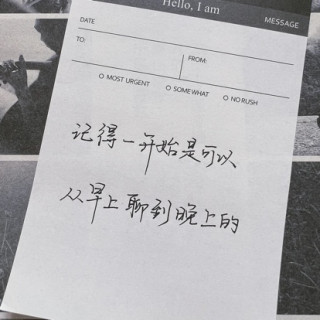 Hello, I am
MESSAGE
DATE
TO:
FROM:
MOST URGENT
SOMEWHAT
NO RUSH
记得一开始是可以
从早上聊到晚上的